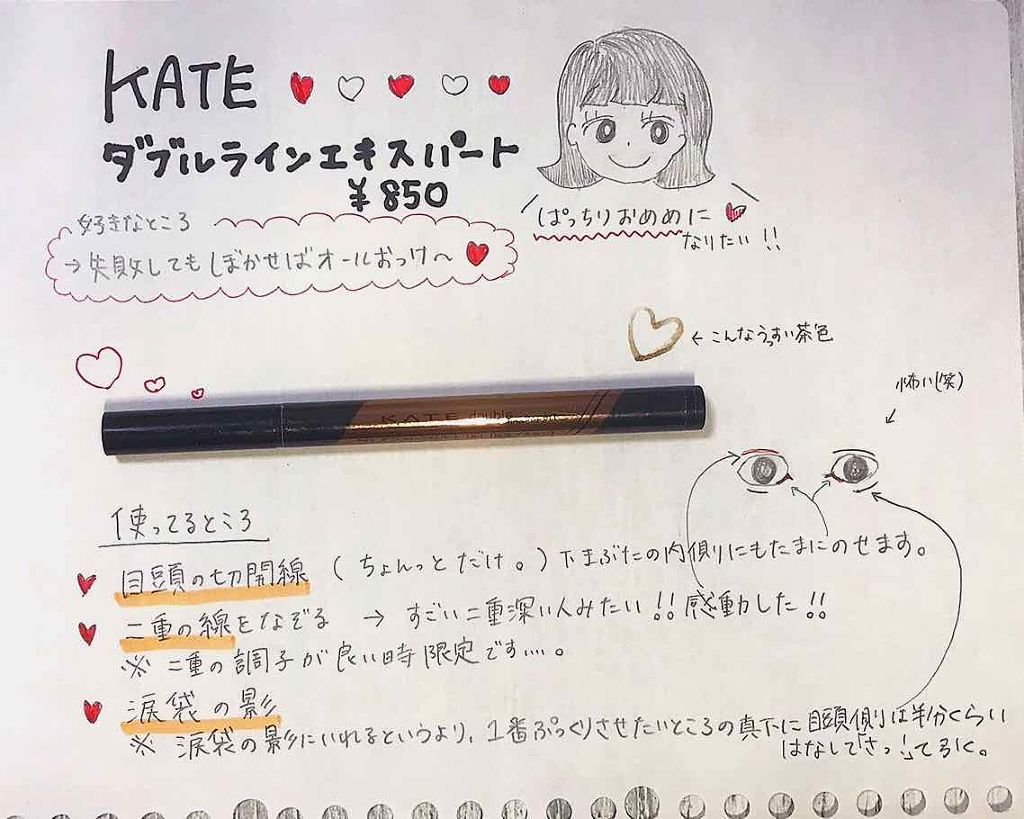 KATE
ダブルラインエキスパート
¥850
ぱっちりおめめに
なりたい!!
好きなところ
→失敗してもぼかせばオールおっけ〜
←こんなうっすい茶色
怖い(笑)
KATE double
使ってるところ
目頭の切開線(ちょんっとだけ。)下まぶたの内側にもたまにのせます。
二重の線をなぞる → すごい二重深い人みたい!!感動した!!
※ 二重の調子が良い時限定です....。
涙袋の影
※ 涙袋の影にいれるというより、1番ぷっくりさせたいところの真下に目頭側は半分くらい
はなして「さっ!」て引く。